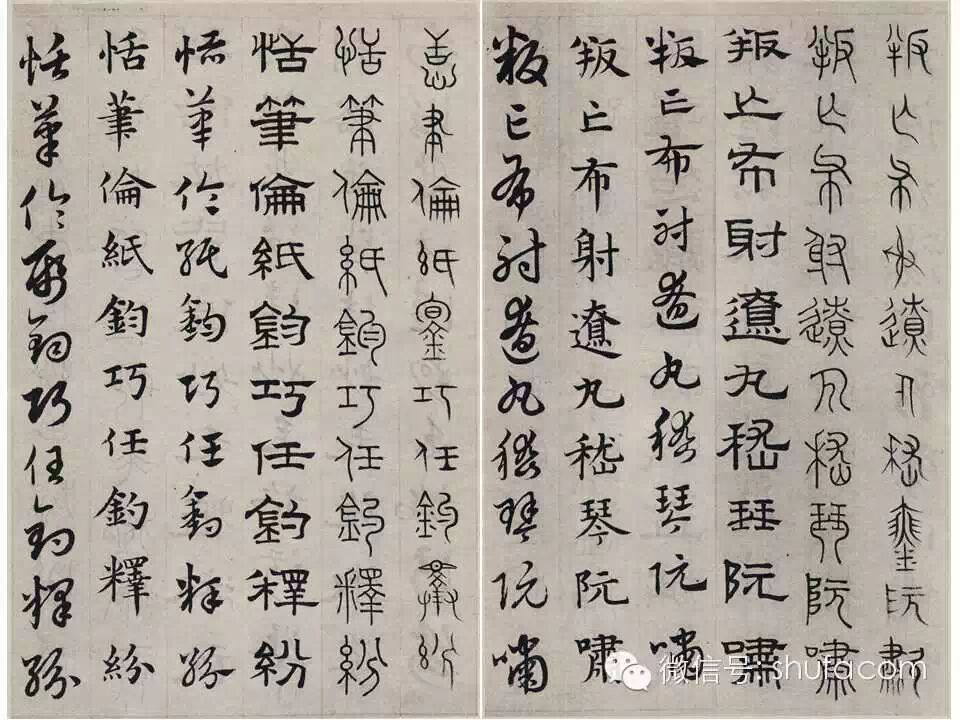 叛亡布射遼丸嵇琴阮嘯
叛亡布射遼丸嵇琴阮嘯
叛亡布射遼丸嵇琴阮嘯
叛亡布射遼丸嵇琴阮嘯
叛亡布射遼丸嵇琴阮嘯
叛亡布射遼丸嵇琴阮嘯
恬筆倫紙鈞巧任釣釋紛
恬筆倫紙鈞巧任釣釋紛
恬筆倫紙鈞巧任釣釋紛
恬筆倫紙鈞巧任釣釋紛
恬筆倫紙鈞巧任釣釋紛
恬筆倫紙鈞巧任釣釋紛
微信号: shufacom